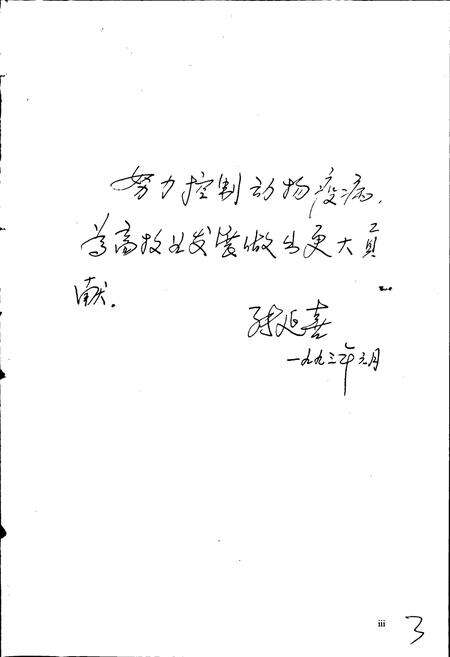 努力控制动物疫病，
为畜牧业发展做出更大贡
献。
张延喜
一九九三年元月
iii
3